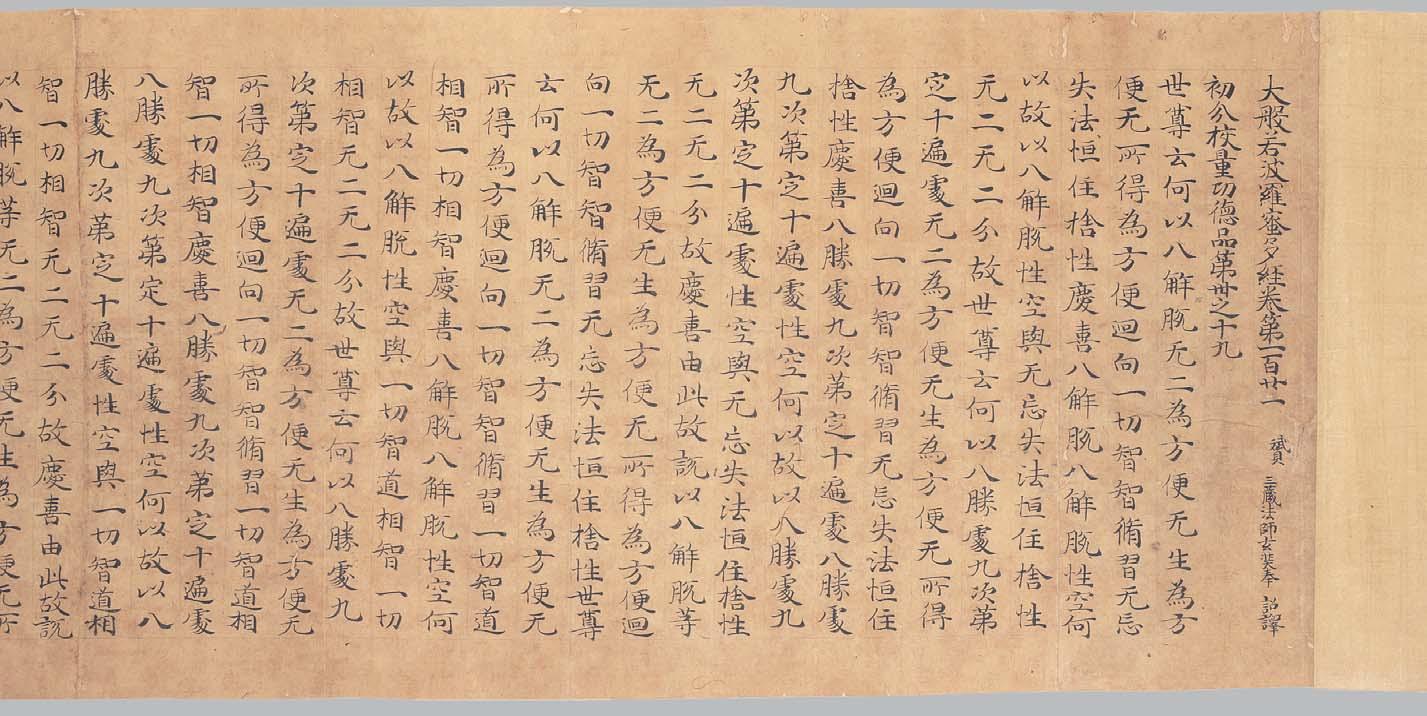 大般若波羅蜜多經卷第一百廿二 贊 三蔵法師玄奘奉 詔譯
初分校量功德品第卅之十九
世尊云何以八解脫无二為方便无生為方
便无所得為方便迴向一切智智脩習无忘
失法恒住捨性慶喜八解脫八解脫性空何
以故以八解脫性空與无忘失法恒住捨性
无二无二分故世尊云何以八勝處九次第
定十遍處无二為方便无生為方便无所得
為方便迴向一切智智脩習无忘失法恒住
捨性慶喜八勝處九次第定十遍處八勝處
九次第定十遍處性空何以故以八勝處九
次第定十遍處性空與无忘失法恒住捨性
无二无二分故慶喜由此故說以八解脫等
无二為方便无生為方便无所得為方便迴
向一切智智脩習无忘失法恒住捨性世尊
云何以八解脫无二為方便无生為方便无
所得為方便迴向一切智智脩習一切智道
相智一切相智慶喜八解脫八解脫性空何
以故以八解脫性空與一切智道相智一切
相智无二无二分故世尊云何以八勝處九
次第定十遍處无二為方便无生為方便无
所得為方便迴向一切智智脩習一切智道相
智一切相智慶喜八勝處九次第定十遍處
八勝處九次第定十遍處性空何以故以八
勝處九次第定十遍處性空與一切智道相
智一切相智无二无二分故慶喜由此故說
以八解脫等无二為方便无生為方便无所